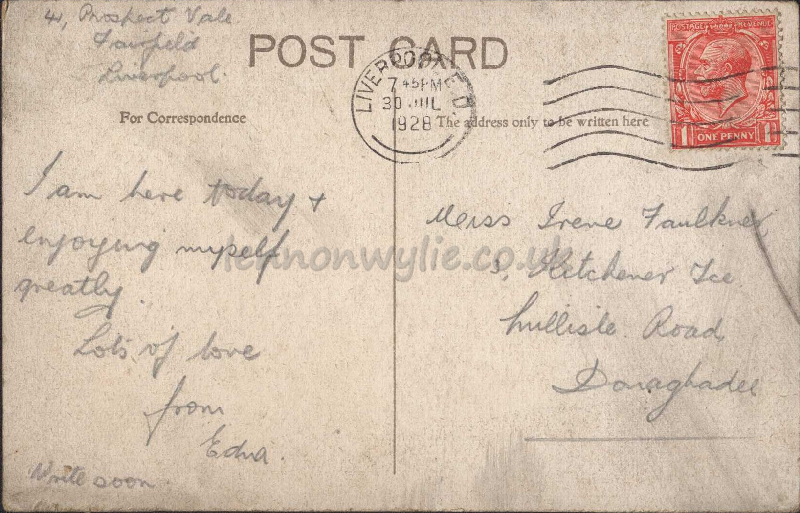 41, Prospect Vale
Fairfield
Liverpool.
POST CARD
LIVERPOOL
7 45 PM
30 JUL
1928
POSTAGE REVENUE
1 ONE PENNY 1
For Correspondence
The address only to be written here
I am here today +
enjoying myself
greatly.
Lots of love
from
Edna.
Write soon
Miss Irene Faulkner,
3, Kitchener Tce
Killisle Road,
Donaghadee
lennonwylie.co.uk